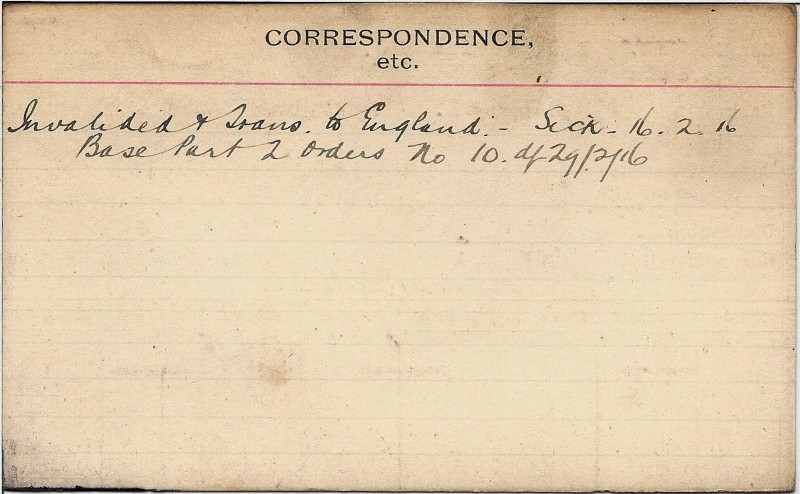 CORRESPONDENCE,
etc.
Invalided & Trans. to England. - Sick - 16. 2. 16
Base Part 2 Orders No 10. d/29/2/16